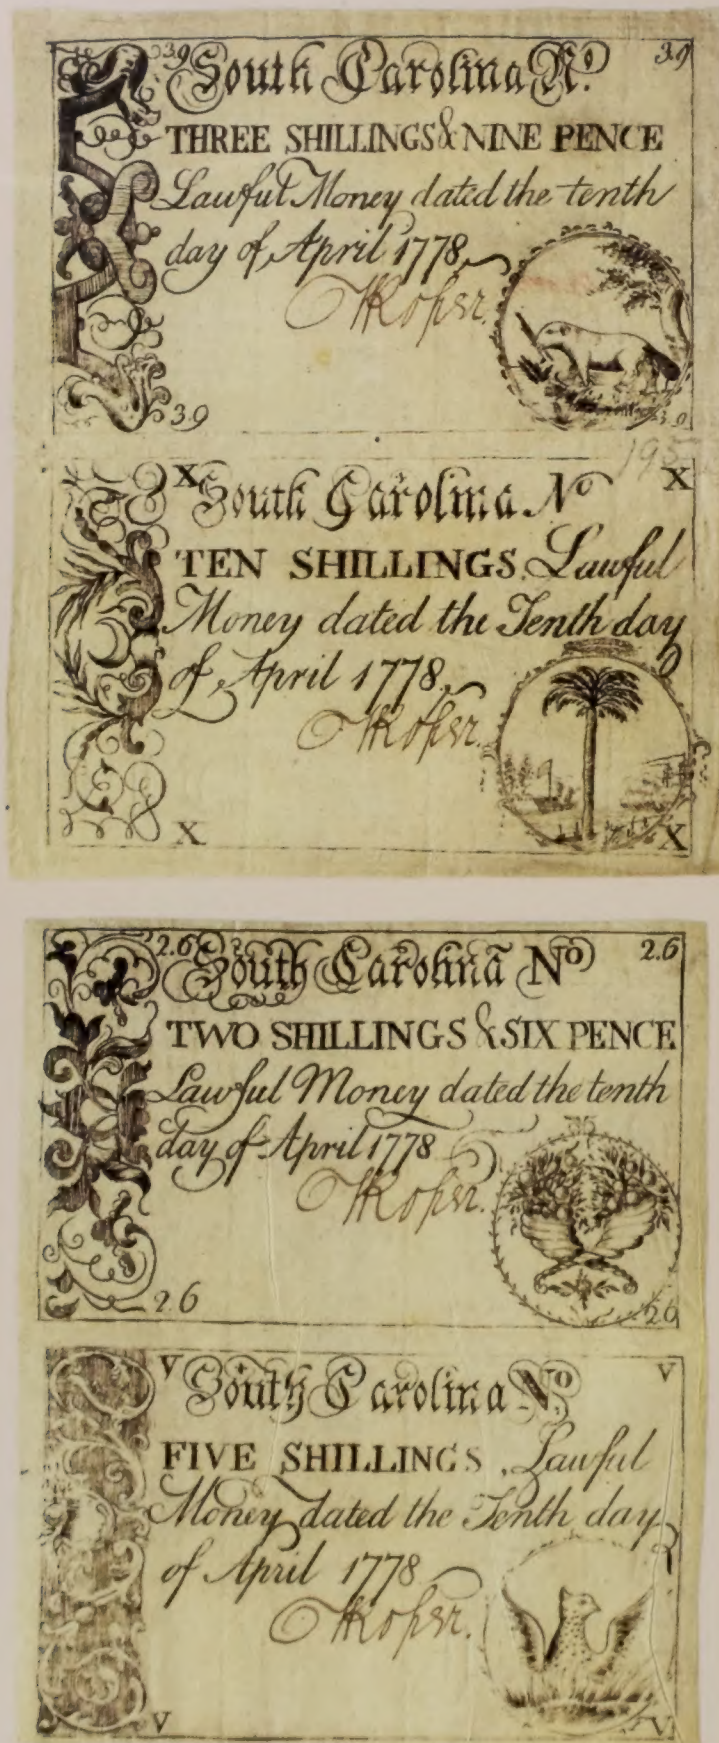 3.9 South Carolina No. 3.9
THREE SHILLINGS & NINE PENCE
Lawful Money dated the tenth
day of April 1778
T Roper.
3.9 3.9
195
X South Carolina No X
TEN SHILLINGS. Lawful
Money dated the Tenth day
of April 1778
T Roper.
X X
2.6 South Carolina No 2.6
TWO SHILLINGS & SIX PENCE
Lawful Money dated the tenth
day of April 1778
T Roper.
2.6 2.6
V South Carolina No. V
FIVE SHILLINGS. Lawful
Money dated the Tenth day
of April 1778
T Roper.
V V